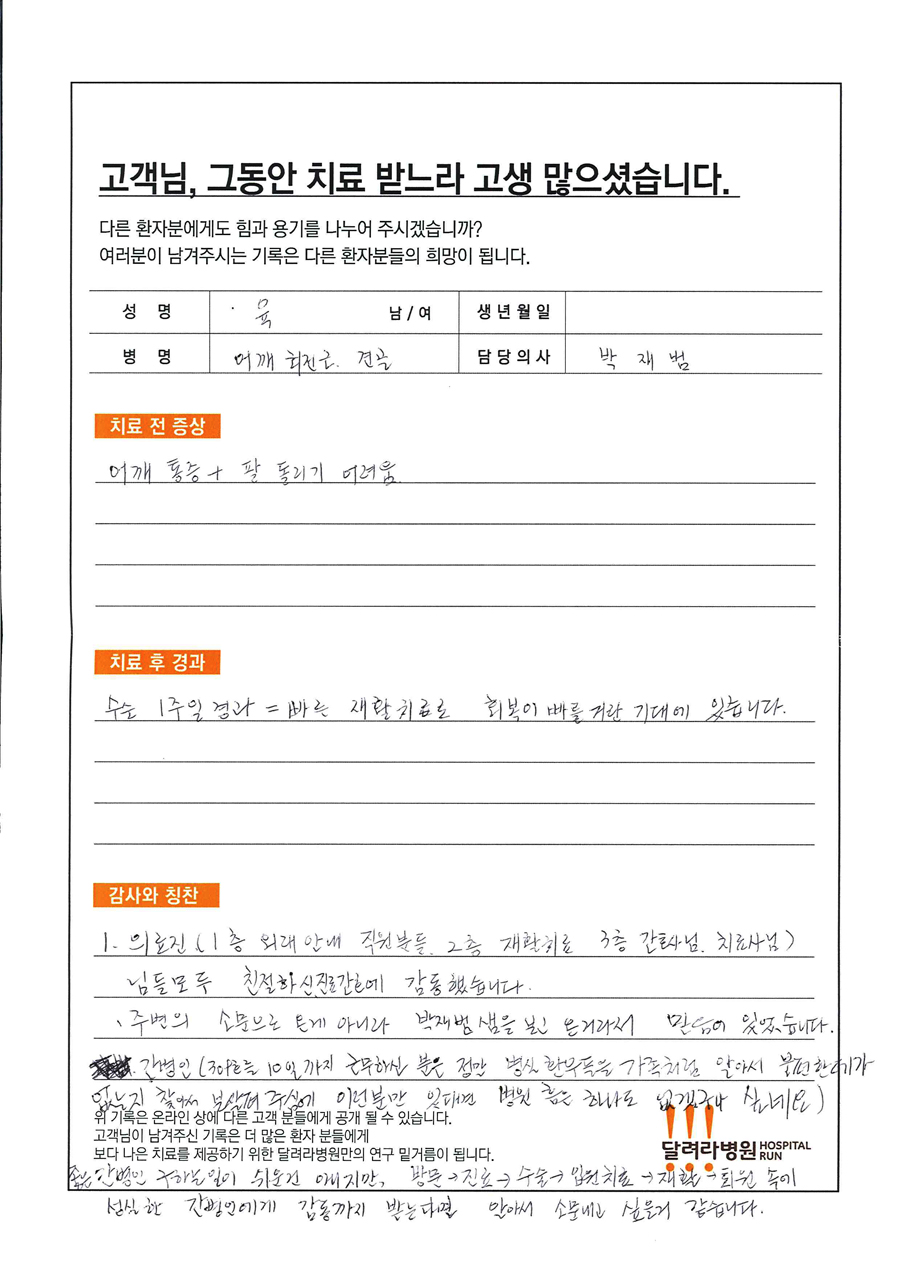 고객님, 그동안 치료 받느라 고생 많으셨습니다.
다른 환자분에게도 힘과 용기를 나누어 주시겠습니까?
여러분이 남겨주시는 기록은 다른 환자분들의 희망이 됩니다.
성 명 육 남 / 여 생 년 월 일
병 명 어깨 회전근. 견골 담 당 의 사 박 재 범
치료 전 증상
어깨 통증 + 팔 돌리기 어려움
치료 후 경과
수술 1주일 경과 = 빠른 재활치료로 회복이 빠를거란 기대에 있습니다.
감사와 칭찬
1. 의료진 (1층 외래 안내 직원분들. 2층 재활치료 3층 간호사님. 치료사님)
님들모두 친절하신 진료간호에 감동했습니다.
、주변의 소문으로 온게 아니라 박재범 샘을 보고 온거라서 믿음이 있었습니다.
간병인 (301호를 10일까지 근무하신 분은 정말 병실 환우분을 가족처럼 알아서 불편한데가
없는지 찾아서 보살펴 주심에 이런분만 있다면 병원 흠은 하나도 없겠구나 싶네(요)
위 기록은 온라인 상에 다른 고객 분들에게 공개 될 수 있습니다.
고객님이 남겨주신 기록은 더 많은 환자 분들에게
보다 나은 치료를 제공하기 위한 달려라병원만의 연구 밑거름이 됩니다.
달려라병원 HOSPITAL RUN
좋은 간병인 구하는일이 쉬운건 아니지만, 방문→진료→수술→입원치료→재활→퇴원 속에
성실한 간병인에게 감동까지 받는다면 알아서 소문내고 싶을거 같습니다.